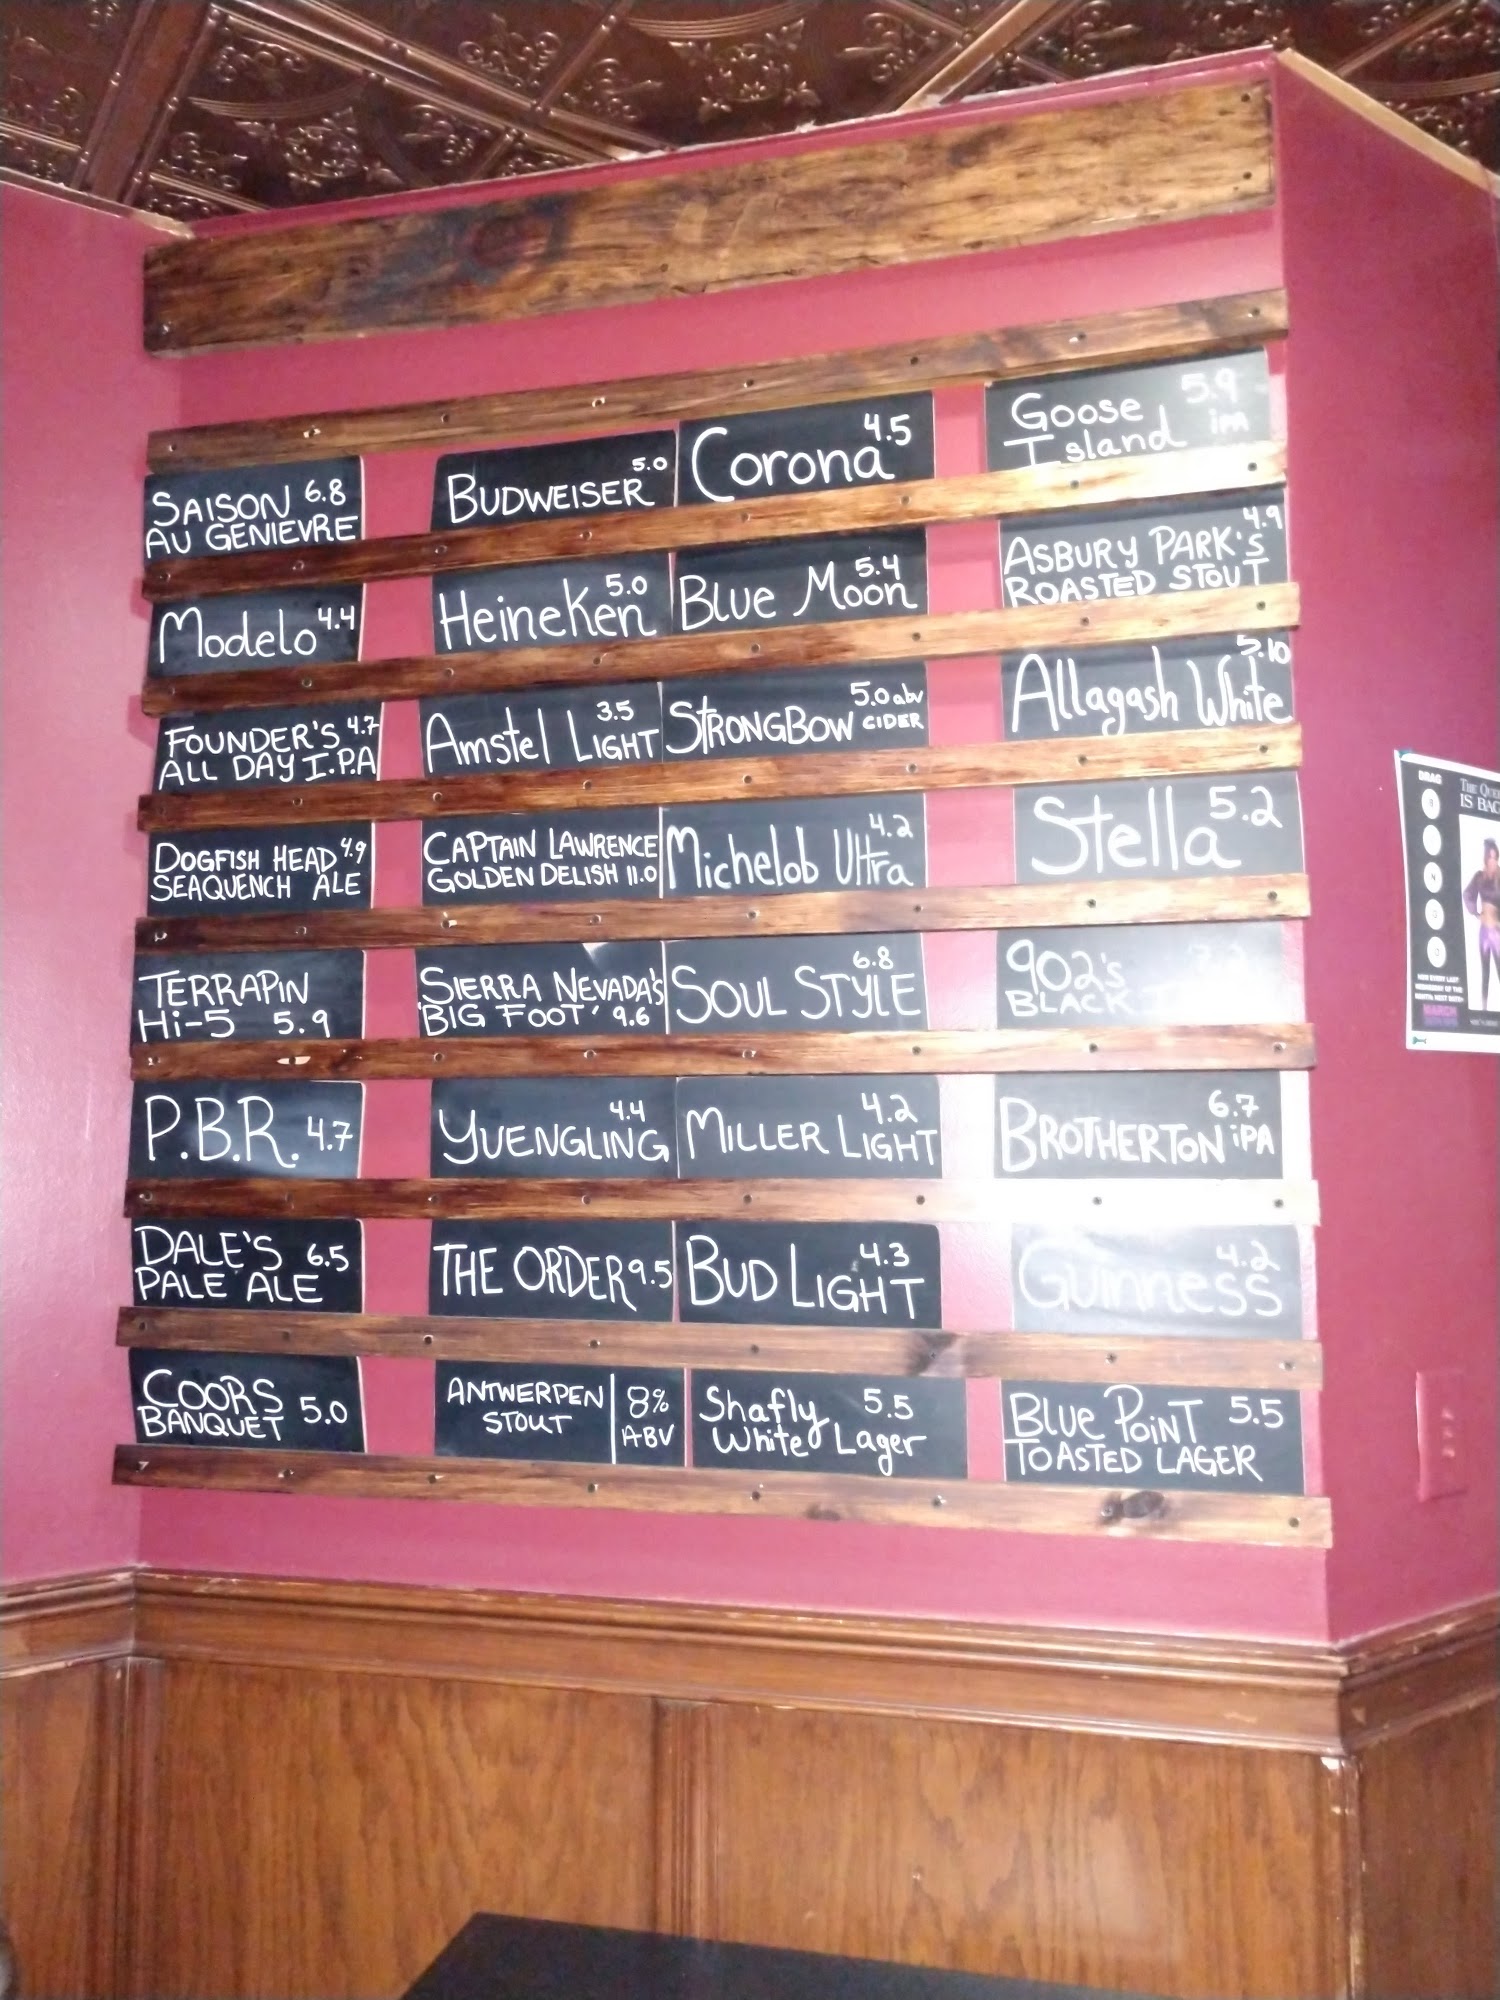 SAISON 6.8
AU GENIEVRE
BUDWEISER 5.0
Corona 4.5
Goose 5.9
Island iPA
Modelo 4.4
HeineKen 5.0
Blue Moon 5.4
ASBURY PARK'S 4.9
ROASTED STOUT
FOUNDER'S 4.7
ALL DAY I.P.A
Amstel LIGHT 3.5
STRONGBOW 5.0 abv
CIDER
Allagash White 5.10
DOGFISH HEAD 4.9
SEAQUENCH ALE
CAPTAIN LAWRENCE
GOLDEN DELISH 11.0
Michelob Ultra 4.2
Stella 5.2
TERRAPIN
Hi-5 5.9
SIERRA NEVADA'S
'BIG FOOT' 9.6
SOUL STYLE 6.8
902's
BLACK
P.B.R. 4.7
YUENGLING 4.4
MILLER LIGHT 4.2
BROTHERTON 6.7
iPA
DALE'S 6.5
PALE ALE
THE ORDER 9.5
BUD LIGHT 4.3
Guinness 4.2
COORS 5.0
BANQUET
ANTWERPEN 8%
STOUT ABV
Shafly 5.5
White Lager
BLUE POINT 5.5
TOASTED LAGER
DRAG
IS BAC
MARCH